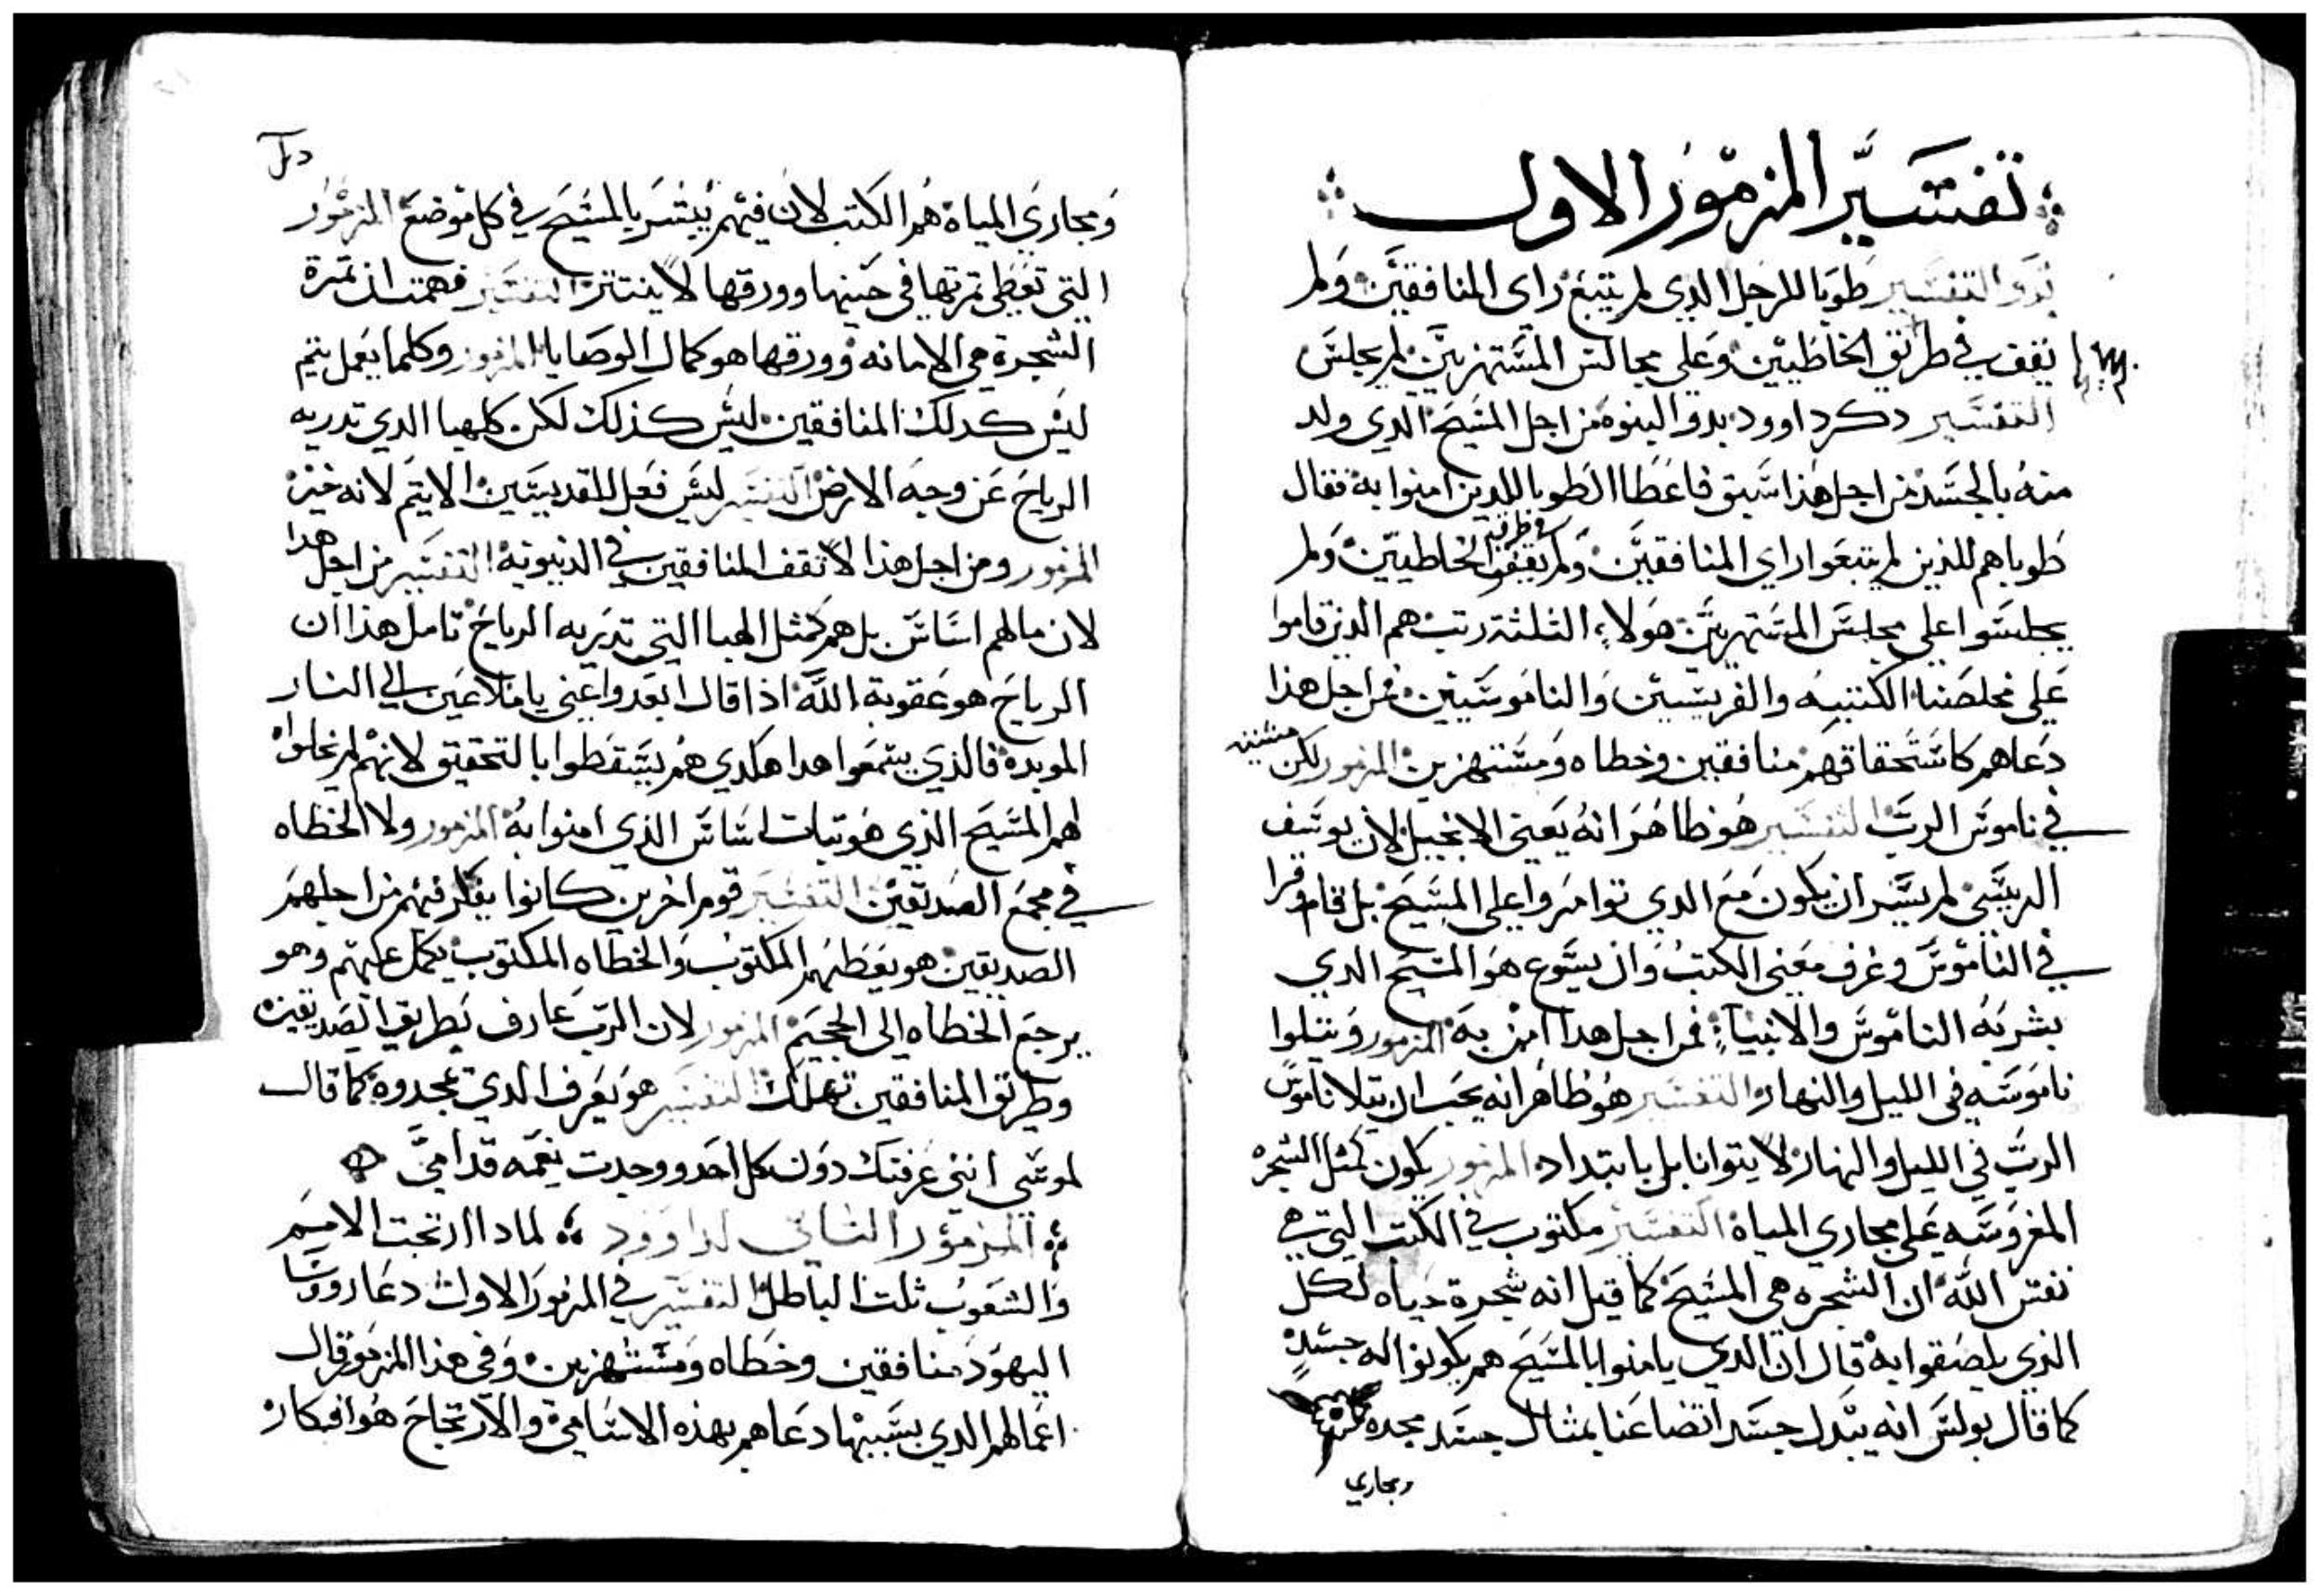 تفسير المزمور الاول
بدو التفسير طوبا للرجل الدي لم يتبع راى المنافقين ولم
يقف في طريق الخاطيين وعلى مجالس المستهزيين لم يجلس
التفسير دكر داوود بدو النبوه من اجل المسيح الدي ولد
منه بالجسد من اجل هذا سبق فاعطا الطوبا للدين امنوا به فقال
طوباهم للذين لم يتبعوا راي المنافقين ولم يقفوا في طريق الخاطيين ولم
يجلسوا على مجلس المستهزيين هولاء الثلثة رتب هم الذين قاموا
على مخلصنا الكتبه والفريسيين والناموسيين فمن اجل هذا
دعاهم كاستحقاقهم منافقين وخطاه ومستهزين المزمور لكن مشيته
في ناموس الرب التفسير هو ظاهر انه يعني الانجيل لان يوسف
الريس لم يسر ان يكون مع الدي توامروا على المسيح بل قام وقرا
في الناموس وعرف معنى الكتب وان يسوع هو المسيح الدي
بشر به الناموس والانبياء فمن اجل هدا امن به المزمور ويتلوا
ناموسه في الليل والنهار التفسير هو ظاهر انه يجب ان يتلا ناموس
الرب في الليل والنهار لا يتوانا بل بابتداد المزمور يكون كمثل الشجره
المغروسه على مجاري المياة التفسير مكتوب في الكتب التي هي
نفس الله ان الشجره هي المسيح كما قيل انه شجرة حياه لكل
الذي يلصقوا به قال ان الدي يامنوا بالمسيح هم يكونوا له جسد
كما قال بولس انه يبدل جسد اتضاعنا بمثال جسد مجده
ومجاري
ومجاري المياة هم الكتب لان فيهم يبشر بالمسيح في كل موضع المزمور
التي تعطي ثمرتها في حينها وورقها لا ينتثر التفسير فهمت ان ثمرة
الشجرة هي الامانه وورقها هو كمال الوصايا المزمور وكلما يعمل يتم
ليس كدلك المنافقين ليس كذلك لكن كالهبا الدي تدريه
الرياح عن وجه الارض التفسير ليس فعل للقديسين الا يتم لانه خير
المزمور ومن اجل هذا لا تقف المنافقين في الدينونة التفسير من اجل هدا
لان مالهم اساس بل هم كمثل الهبا التي تدريه الرياح تامل هذا ان
الرياح هو عقوبة الله اذا قال ابعدوا عني يا ملاعين الى النار
الموبدة فالذي يسمعوا هدا هكدي هم يسقطوا بالتحقيق لانهم لم يخلوا
لهم المسيح الذي هو تبات اساس الذي امنوا به المزمور ولا الخطاه
في مجمع الصديقين التفسير قوم اخرين كانوا يفكر فيهم من اجلهم
الصديقين هو يعظهم المكتوب والخطاه المكتوب يكمل عليهم وهو
يرجع الخطاه الى الجحيم المزمور لان الرب عارف بطريق الصديقين
وطريق المنافقين تهلك التفسير هو يعرف الدي تمجدوه كما قال
لموسى انني عرفتك دون كل احد ووجدت نعمه قدامي
المزمور الثاني لداوود لمادا ارتجت الامم
والشعوب تلت الباطل التفسير في المزمور الاول دعا روسا
اليهود منافقين وخطاه ومستهزين وفي هذا المزمور قال
اعمالهم الدي بسببها دعاهم بهذه الاسامي والارتجاج هو افكار